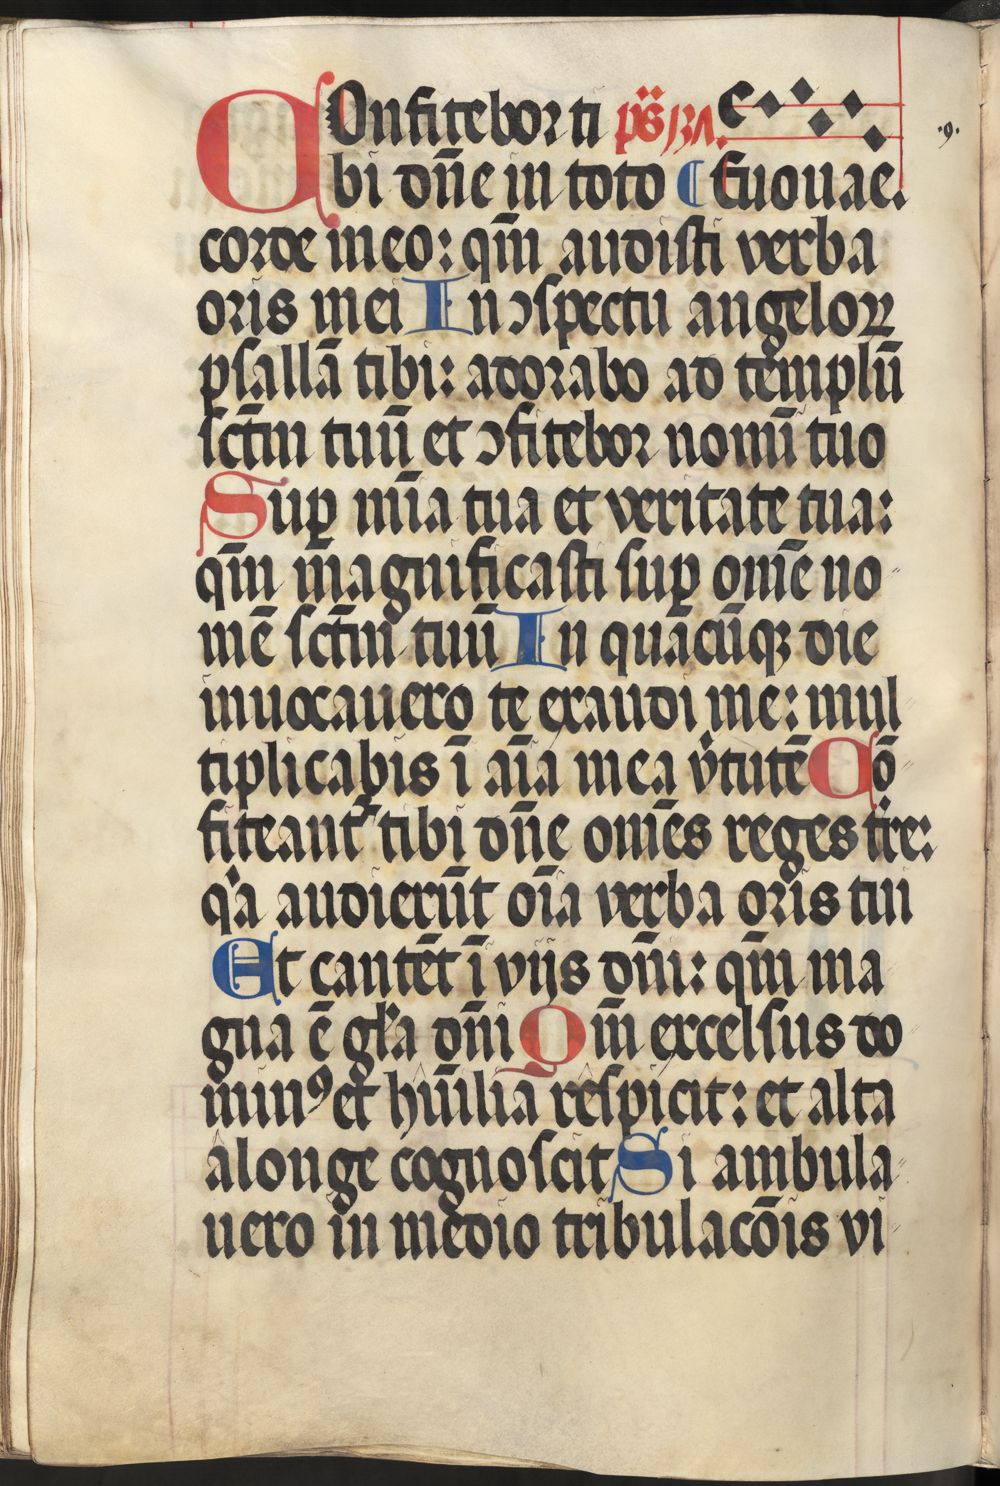 COnfitebor ti ps̄ 137.
·9·
bi dn̄e in toto Euouae.
corde meo: qm̄ audisti verba
oris mei In ↄspectu angeloꝝ
psallā tibi: adorabo ad templū
sct̄m tuū et ↄfitebor nomī tuo
Suꝑ mīa tua et veritate tua:
qm̄ magnificasti suꝑ om̄e no
mē sct̄m tuū In quacūqꝫ die
inuocauero te exaudi me: mul
tiplicabis ī aīa mea v̓tutē Cō
fiteant᷑ tibi dn̄e om̄es reges tr̓e:
qͥa audierūt oīa verba oris tui
Et cantēt ī vijs dn̄i: qm̄ ma
gna ē gl̓a dn̄i Qm̄ excelsus do
minꝰ et hūilia respicit: et alta
alonge cognoscit Si ambula
uero in medio tribulacōis vi